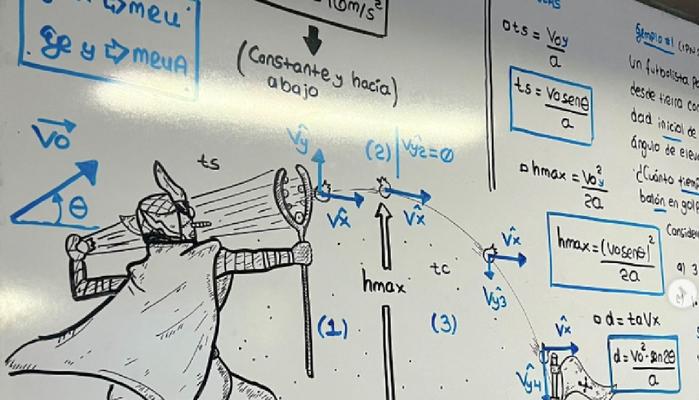 ⇨meu
Eje y ⇨meuA
10m/s²
(Constante y hacia
abajo)
V⃗o
θ
ts
V̂y
V̂x
(2)
V̂y2=0
V̂x
V̂x
V̂y3
hmax
tc
(1)
(3)
V̂x
V̂y4
ts = Voy/a
ts = Vosenθ/a
hmax = Voy²/2a
hmax = (Vosenθ)²/2a
d = taVx
d = Vo²·sen2θ/a
Ejemplo #1 (IPN
Un futbolista
desde tierra
dad inicial de
ángulo de
¿Cuánto
balón en
a) 3